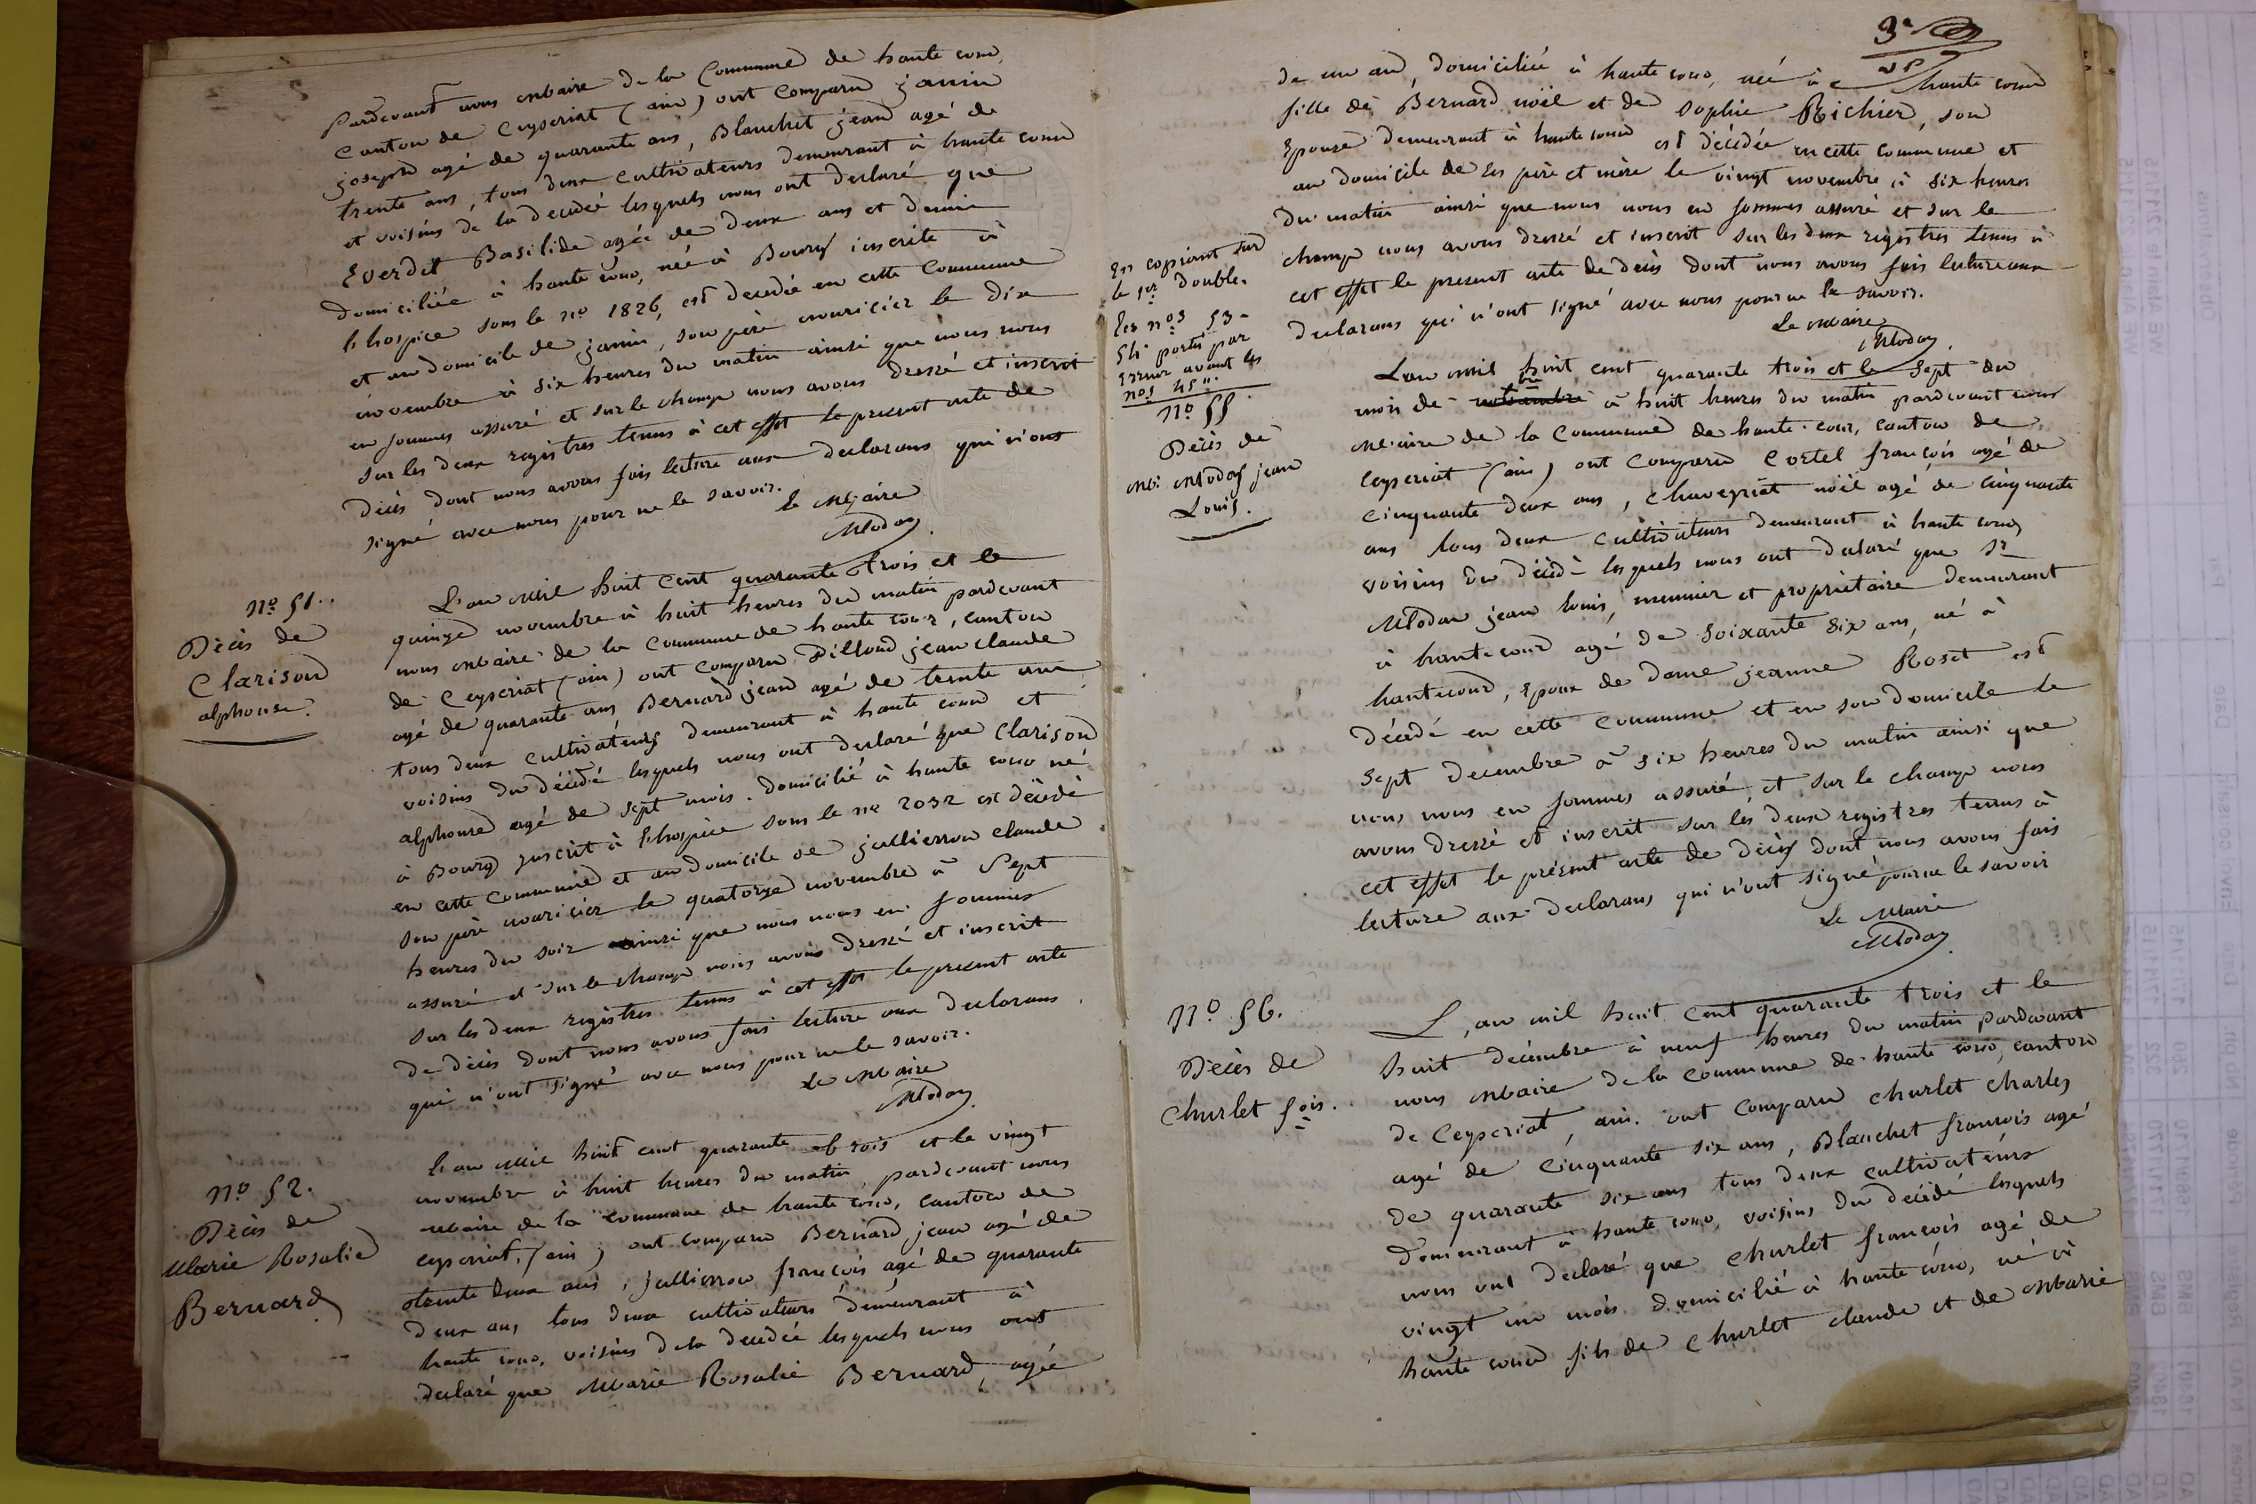 Pardevant nous maire de la Commune de haute cour,
Canton de Ceyseriat (ain) ont comparu janin
joseph agé de quarante ans, Blanchet jean agé de
trente ans, tous deux cultivateurs demeurant à haute cour
et voisins de la decedée lesquels nous ont declaré que
Everdet Basilide agée de deux ans et demie
domiciliée à haute cour, née à Bourg inscrite à
l'hospice sous le no 1826, est decedée en cette Commune
et au domicile de janin, son père nouricier le dix
novembre à six heures du matin ainsi que nous nous
en sommes assuré et sur le champ nous avons dressé et inscrit
sur les deux registres tenus à cet effet le present acte de
décès dont nous avons fais lecture aux declarans qui n'ont
signé avec nous pour ne le savoir.
le Maire
Modas
No 51.
Décès de
Clarison
alphonse.
L'an mil huit cent quarante trois et le
quinze novembre à huit heures du matin pardevant
nous maire de la Commune de haute cour, canton
de Ceyseriat (ain) ont comparu Dillond jean claude
agé de quarante ans Bernard jean agé de trente un
tous deux cultivateurs demeurant à haute cour et
voisins du décédé lesquels nous ont declaré que Clarison
alphonse agé de sept mois. domicilié à haute cour né
à Bourg inscrit à l'hospice sous le no 2032 est décédé
en cette Commune et au domicile de jullierron claude
son père nouricier le quatorze novembre à sept
heures du soir ainsi que nous nous en sommes
assuré et sur le champ nous avons dressé et inscrit
sur les deux registres tenus à cet effet le present acte
de décès dont nous avons fais lecture aux declarans
qui n'ont signé avec nous pour ne le savoir.
Le Maire
Modas
No 52.
Décès de
Marie Rosalie
Bernard
L'an mil huit cent quarante trois et le vingt
novembre à huit heures du matin, pardevant nous
maire de la commune de haute cour, canton de
ceyseriat, (ain) ont comparu Bernard jean agé de
trente deux ans, jullierron françois agé de quarante
deux ans tous deux cultivateurs demeurant à
haute cour, voisins de la decedée lesquels nous ont
declaré que Marie Rosalie Bernard, agée
3e
de un an, domiciliée à haute cour, née à haute cour
fille de Bernard noël et de sophie Richier, son
Epouse demeurant à haute cour est décédée en cette commune et
au domicile de ses père et mère le vingt novembre à six heures
du matin ainsi que nous nous en sommes assuré et sur le
champ nous avons dressé et inscrit sur les deux registres tenus à
cet effet le present acte de décès dont nous avons fais lecture aux
declarans qui n'ont signé avec nous pour ne le savoir.
Le Maire
Modas
En copiant sur
le 1er double,
les nos 53-
54 portés par
erreur avant les
nos 45
No 55
Décès de
Mr. Modas jean
Louis.
L'an mil huit cent quarante trois et le sept du
mois de à huit heures du matin pardevant nous
Maire de la Commune de haute-cour, canton de
Ceyseriat (ain) ont comparu Cortel françois agé de
cinquante deux ans, Chaveyriat noël agé de cinquante
ans tous deux cultivateurs demeurant à haute cour
voisins du décédé lesquels nous ont declaré que Sr
Modas jean louis, meunier et propriétaire demeurant
à hautecour agé de soixante six ans, né à
hautecour, époux de dame jeanne Roset est
décédé en cette commune et en son domicile le
sept decembre à six heures du matin ainsi que
nous nous en sommes assuré, et sur le champ nous
avons dressé et inscrit sur les deux registres tenus à
cet effet le présent acte de décès dont nous avons fais
lecture aux declarans qui n'ont signé pour ne le savoir
Le Maire
Modas
No 56.
Décès de
Churlet fois.
L'an mil huit cent quarante trois et le
huit décembre à neuf heures du matin pardevant
nous Maire de la Commune de haute cour, canton
de Ceyseriat, ain. ont comparu Churlet Charles
agé de cinquante six ans, Blanchet françois agé
de quarante six ans tous deux cultivateurs
demeurant à haute cour, voisins du decédé lesquels
nous ont declaré que Churlet françois agé de
vingt un mois. domicilié à haute cour, né à
haute cour fils de Churlet claude et de Marie